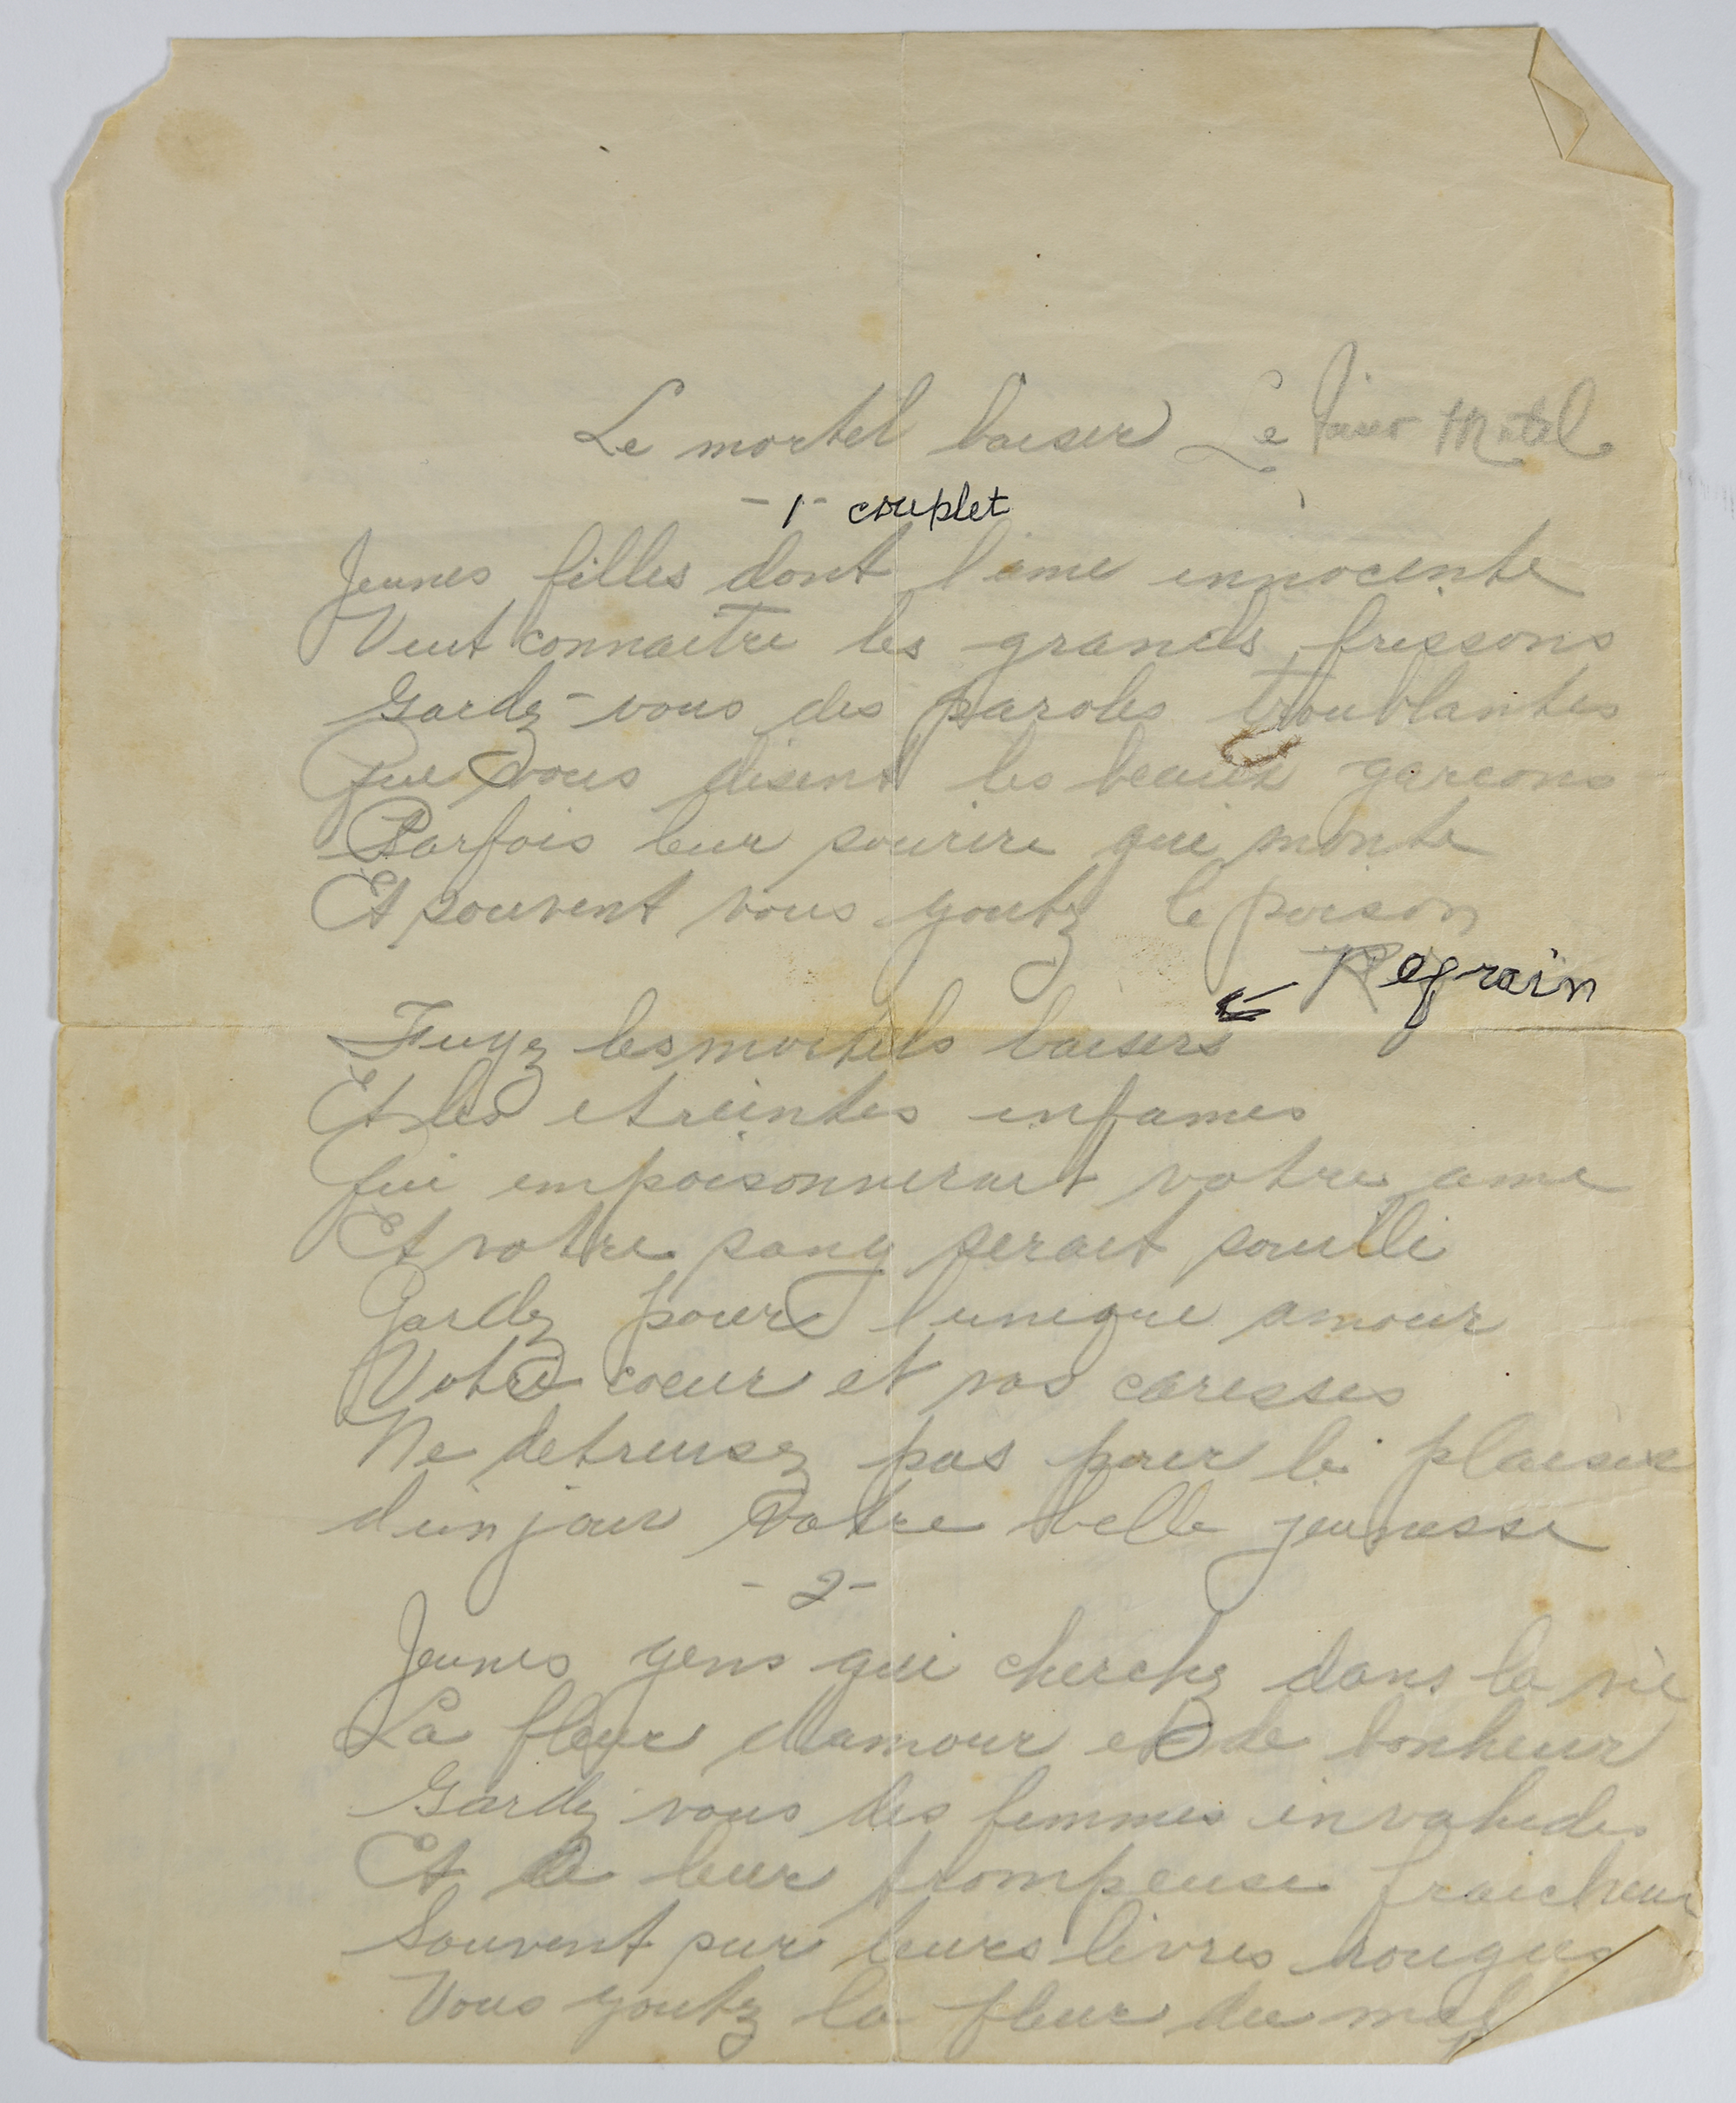 Le mortel baiser Le
-1- couplet
Jeunes filles dont l'ame innocente
Veut connaitre les grands frissons
Gardez-vous des paroles troublantes
Que vous disent les beaux garcons
Parfois leur sourire qui monte
Et souvent vous goutez le poison
← Refrain
Fuyez les mortels baisers
Et les etreintes infames
Qui empoisonnerait votre ame
Et votre sang serait souilli
Gardez pour l'unique amour
Votre coeur et vos caresses
Ne detruisez pas pour le plaisir
d'un jour votre belle jeunesse
-2-
Jeunes gens qui cherchez dans la vie
La fleur d'amour et de bonheur
Gardez vous des femmes invalides
Et de leur trompeuse fraicheur
Souvent sur leurs livres rouges
Vous goutez la fleur du mal